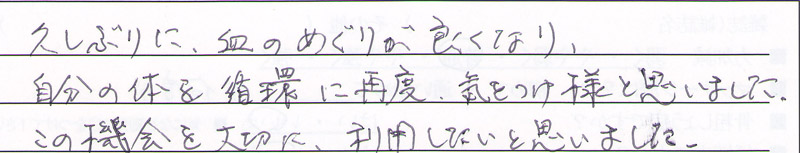 久しぶりに、血のめぐりが良くなり、
自分の体を循環に再度、気をつけ様と思いました。
この機会を大切に、利用したいと思いました。